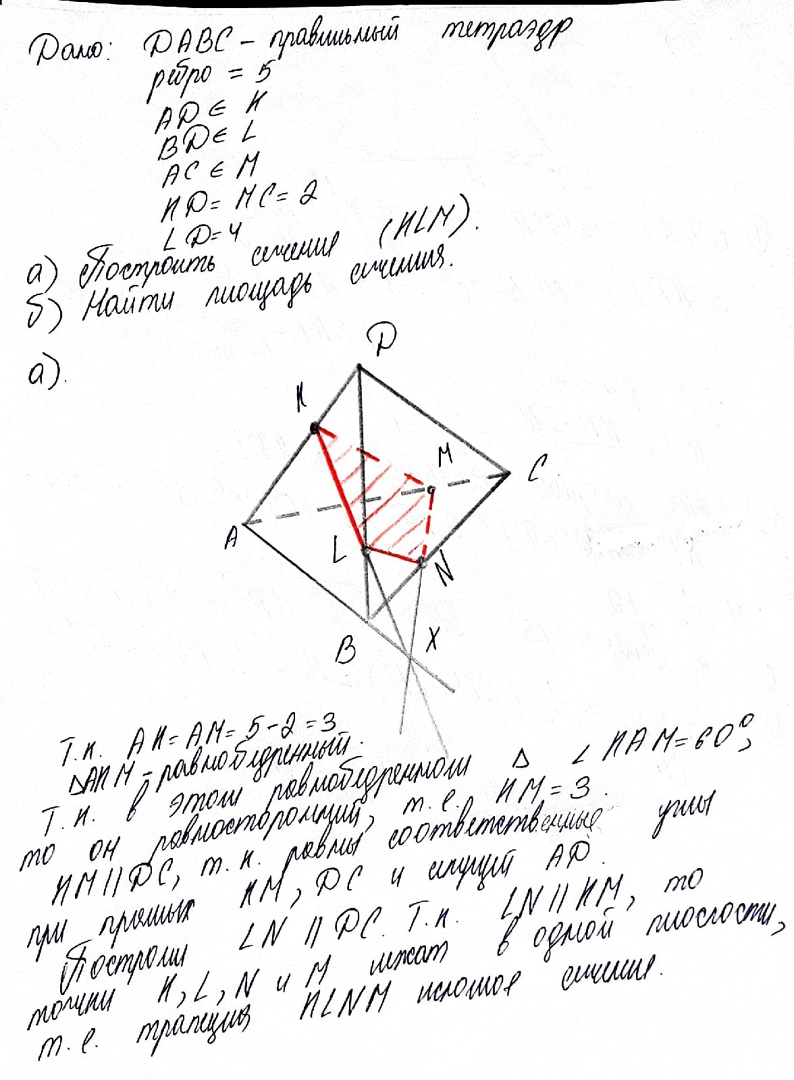 Дано: DABC - правильный тетраэдр
ребро = 5
AD ∈ K
BD ∈ L
AC ∈ M
KD = MC = 2
LD = 4
а) Построить сечение (KLM).
б) Найти площадь сечения.
а).
D
K
M
C
A
L
N
B
X
Т.к. AK = AM = 5 - 2 = 3
△AKM - равнобедренный.
Т.к. в этом равнобедренном △ ∠KAM = 60°,
то он равносторонний, т.е. KM = 3.
KM || DC, т.к. равны соответственные углы
при прямых KM, DC и секущей AD.
Построим LN || DC. Т.к. LN || KM, то
точки K, L, N и M лежат в одной плоскости,
т.е. трапеция KLNM искомое сечение.